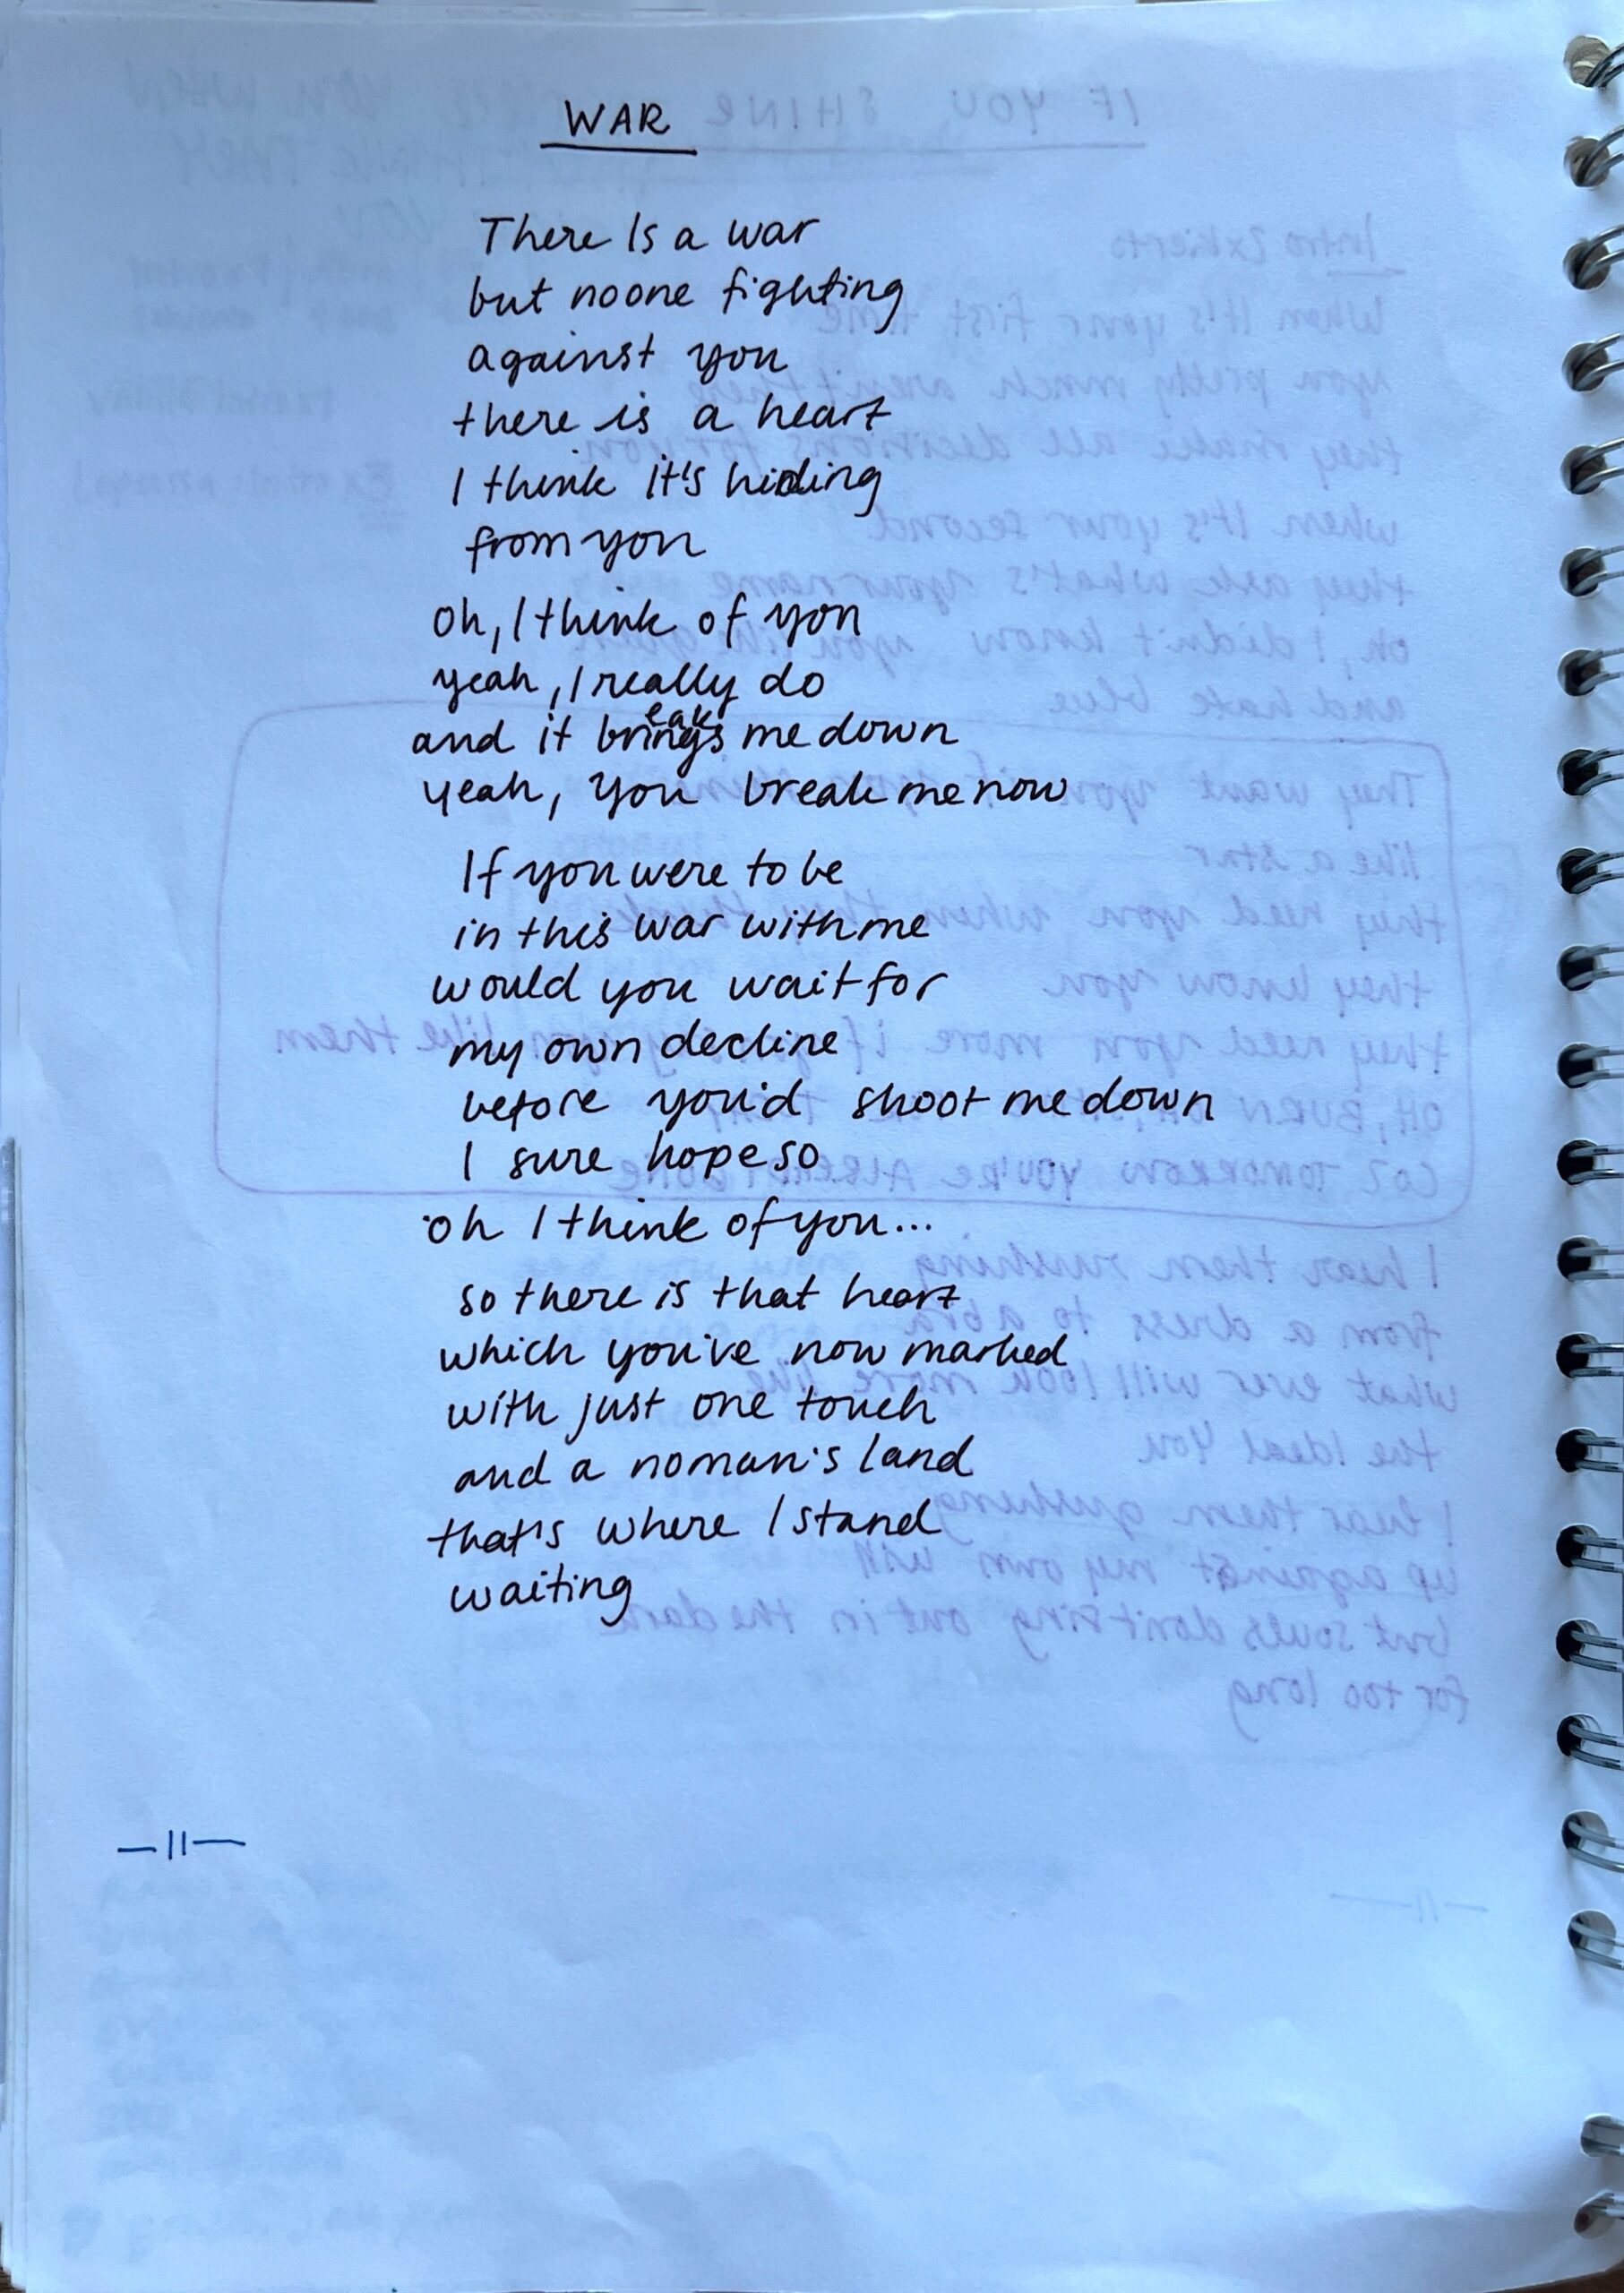 WAR
There Is a war
but noone fighting
against you
there is a heart
I think it's hiding
from you
oh, I think of you
yeah, I really do
and it breaks me down
yeah, you break me now
If you were to be
in this war with me
would you wait for
my own decline
before you'd shoot me down
I sure hope so
oh I think of you...
so there is that heart
which you've now marked
with just one touch
and a noman's land
that's where I stand
waiting
—11—